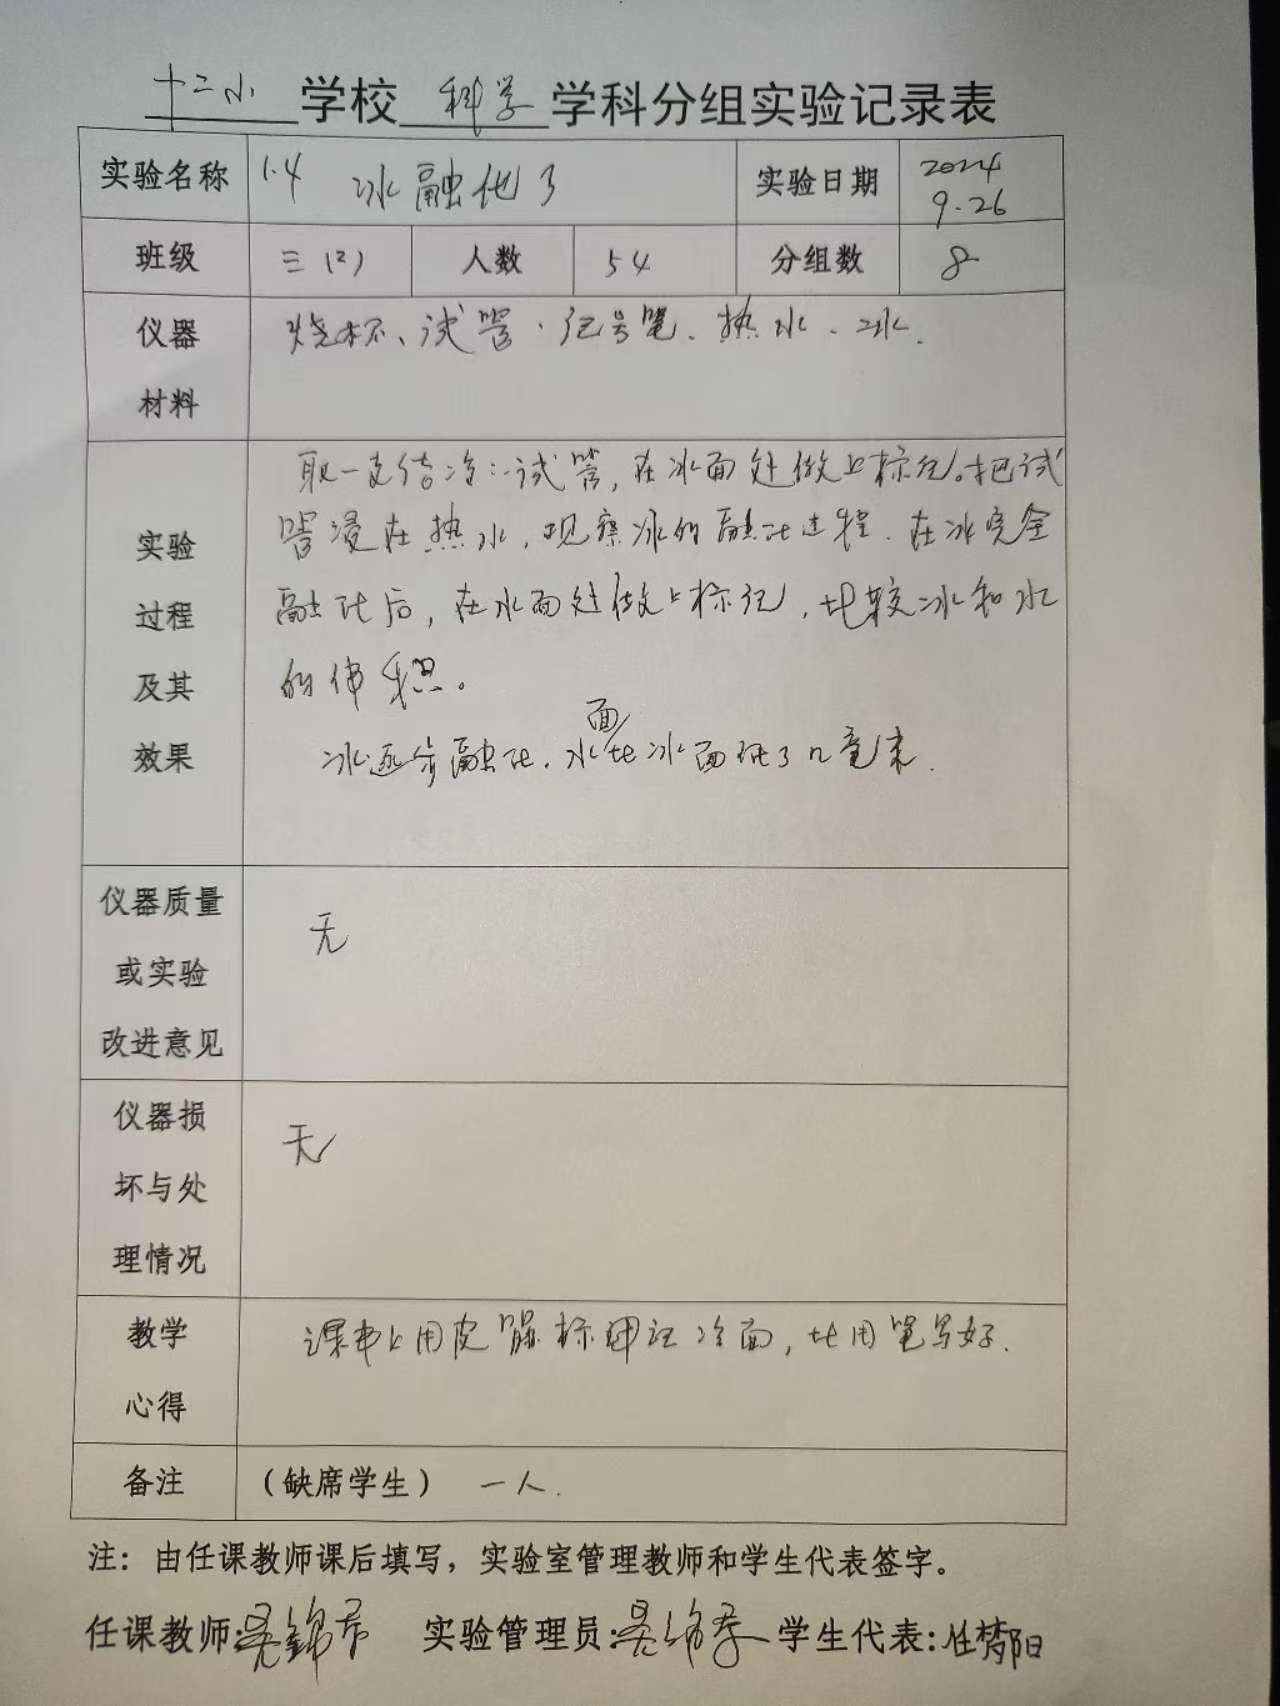 十二小学校科学学科分组实验记录表
实验名称 1.4 冰融化了 实验日期 2024 9.26
班级 三(2) 人数 54 分组数 8
仪器材料 烧杯、试管、记号笔、热水、冰.
实验过程及其效果
取一支结冰试管,在冰面处做上标记。把试
管浸在热水,观察冰的融化过程.在冰完全
融化后,在水面处做上标记,比较冰和水
的体积。
冰逐步融化.水面比冰面低了几毫米.
仪器质量或实验改进意见 无
仪器损坏与处理情况 无
教学心得 课本上用皮筋标记冰面,比用笔写好.
备注 (缺席学生) 一人.
注:由任课教师课后填写,实验室管理教师和学生代表签字。
任课教师: 实验管理员: 学生代表:任梦阳